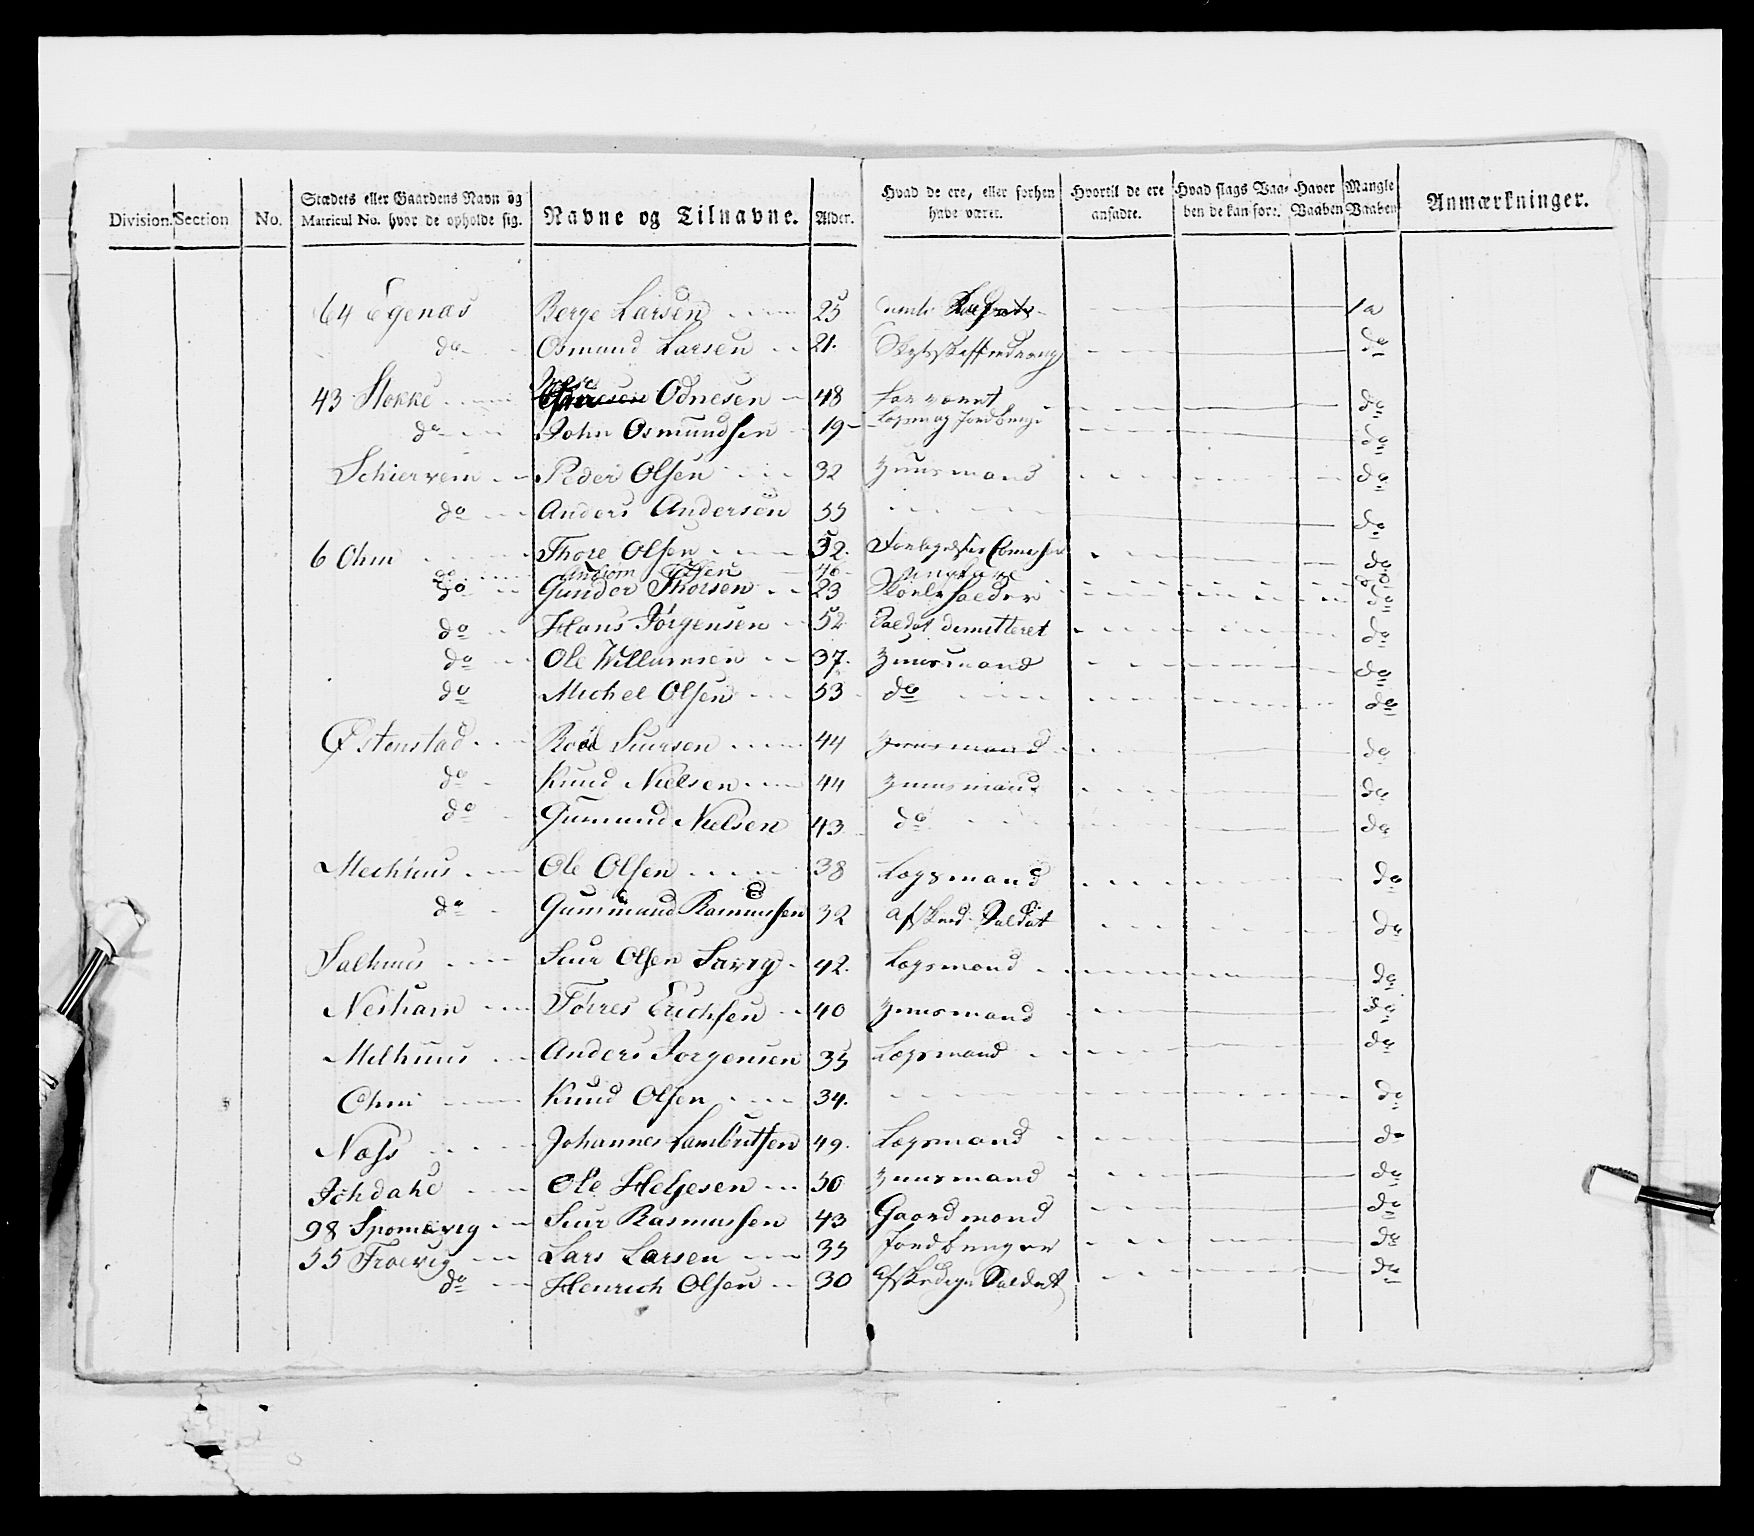 Division. Section No. Stædets eller Gaardens Navn og Matricul No. hvor de opholde sig. Navne og Tilnavne. Alder. Hvad de ere, eller forhen have været. Hvortil de ere ansadte. Hvad slags Vaaben de kan føre. Haver Vaaben Mangle Vaaben Anmærkninger.
64 Egenæs Berge Larsen 25 Ja
do Osmund Larsen 21. do
43 Stokke Odnesen 48 do
do John Osmundsen 19 do
Schiervein Peder Olsen 32 Huusmand do
do Anders Andersen 55 do
6 Ohm Thore Olsen 52. do
do Olsen 46 do
do Gunder Thorsen 23 Skoele holder do
do Hans Jørgensen 52 Saldat demitteret do
do Ole Willumsen 37. Huusmand do
do Michel Olsen 53 do do
Østenstad Roal Siursen 44 Huusmand do
do Knud Nielsen 44 Huusmand do
do Gunmund Nielsen 43 do do
Mechuus Ole Olsen 38 Lægsmand do
do Gunmund Rasmussen 32 Afsked. Saldat do
Salhuus Siur Olsen 42. Lægsmand do
Nesham Torres Erichsen 40 Huusmand do
Melhuus Anders Jorgensen 35 Lægsmand do
Ohm Knud Olsen 34. do
Næss Johannes Lambritsen 49. Lægsmand do
Ole Helgesen 50 Huusmand do
98 Siur Rasmussen 43 Gaardmand do
55 Frøevig Lars Larsen 35 Jordbruger do
do Henrich Olsen 30 Saldat do